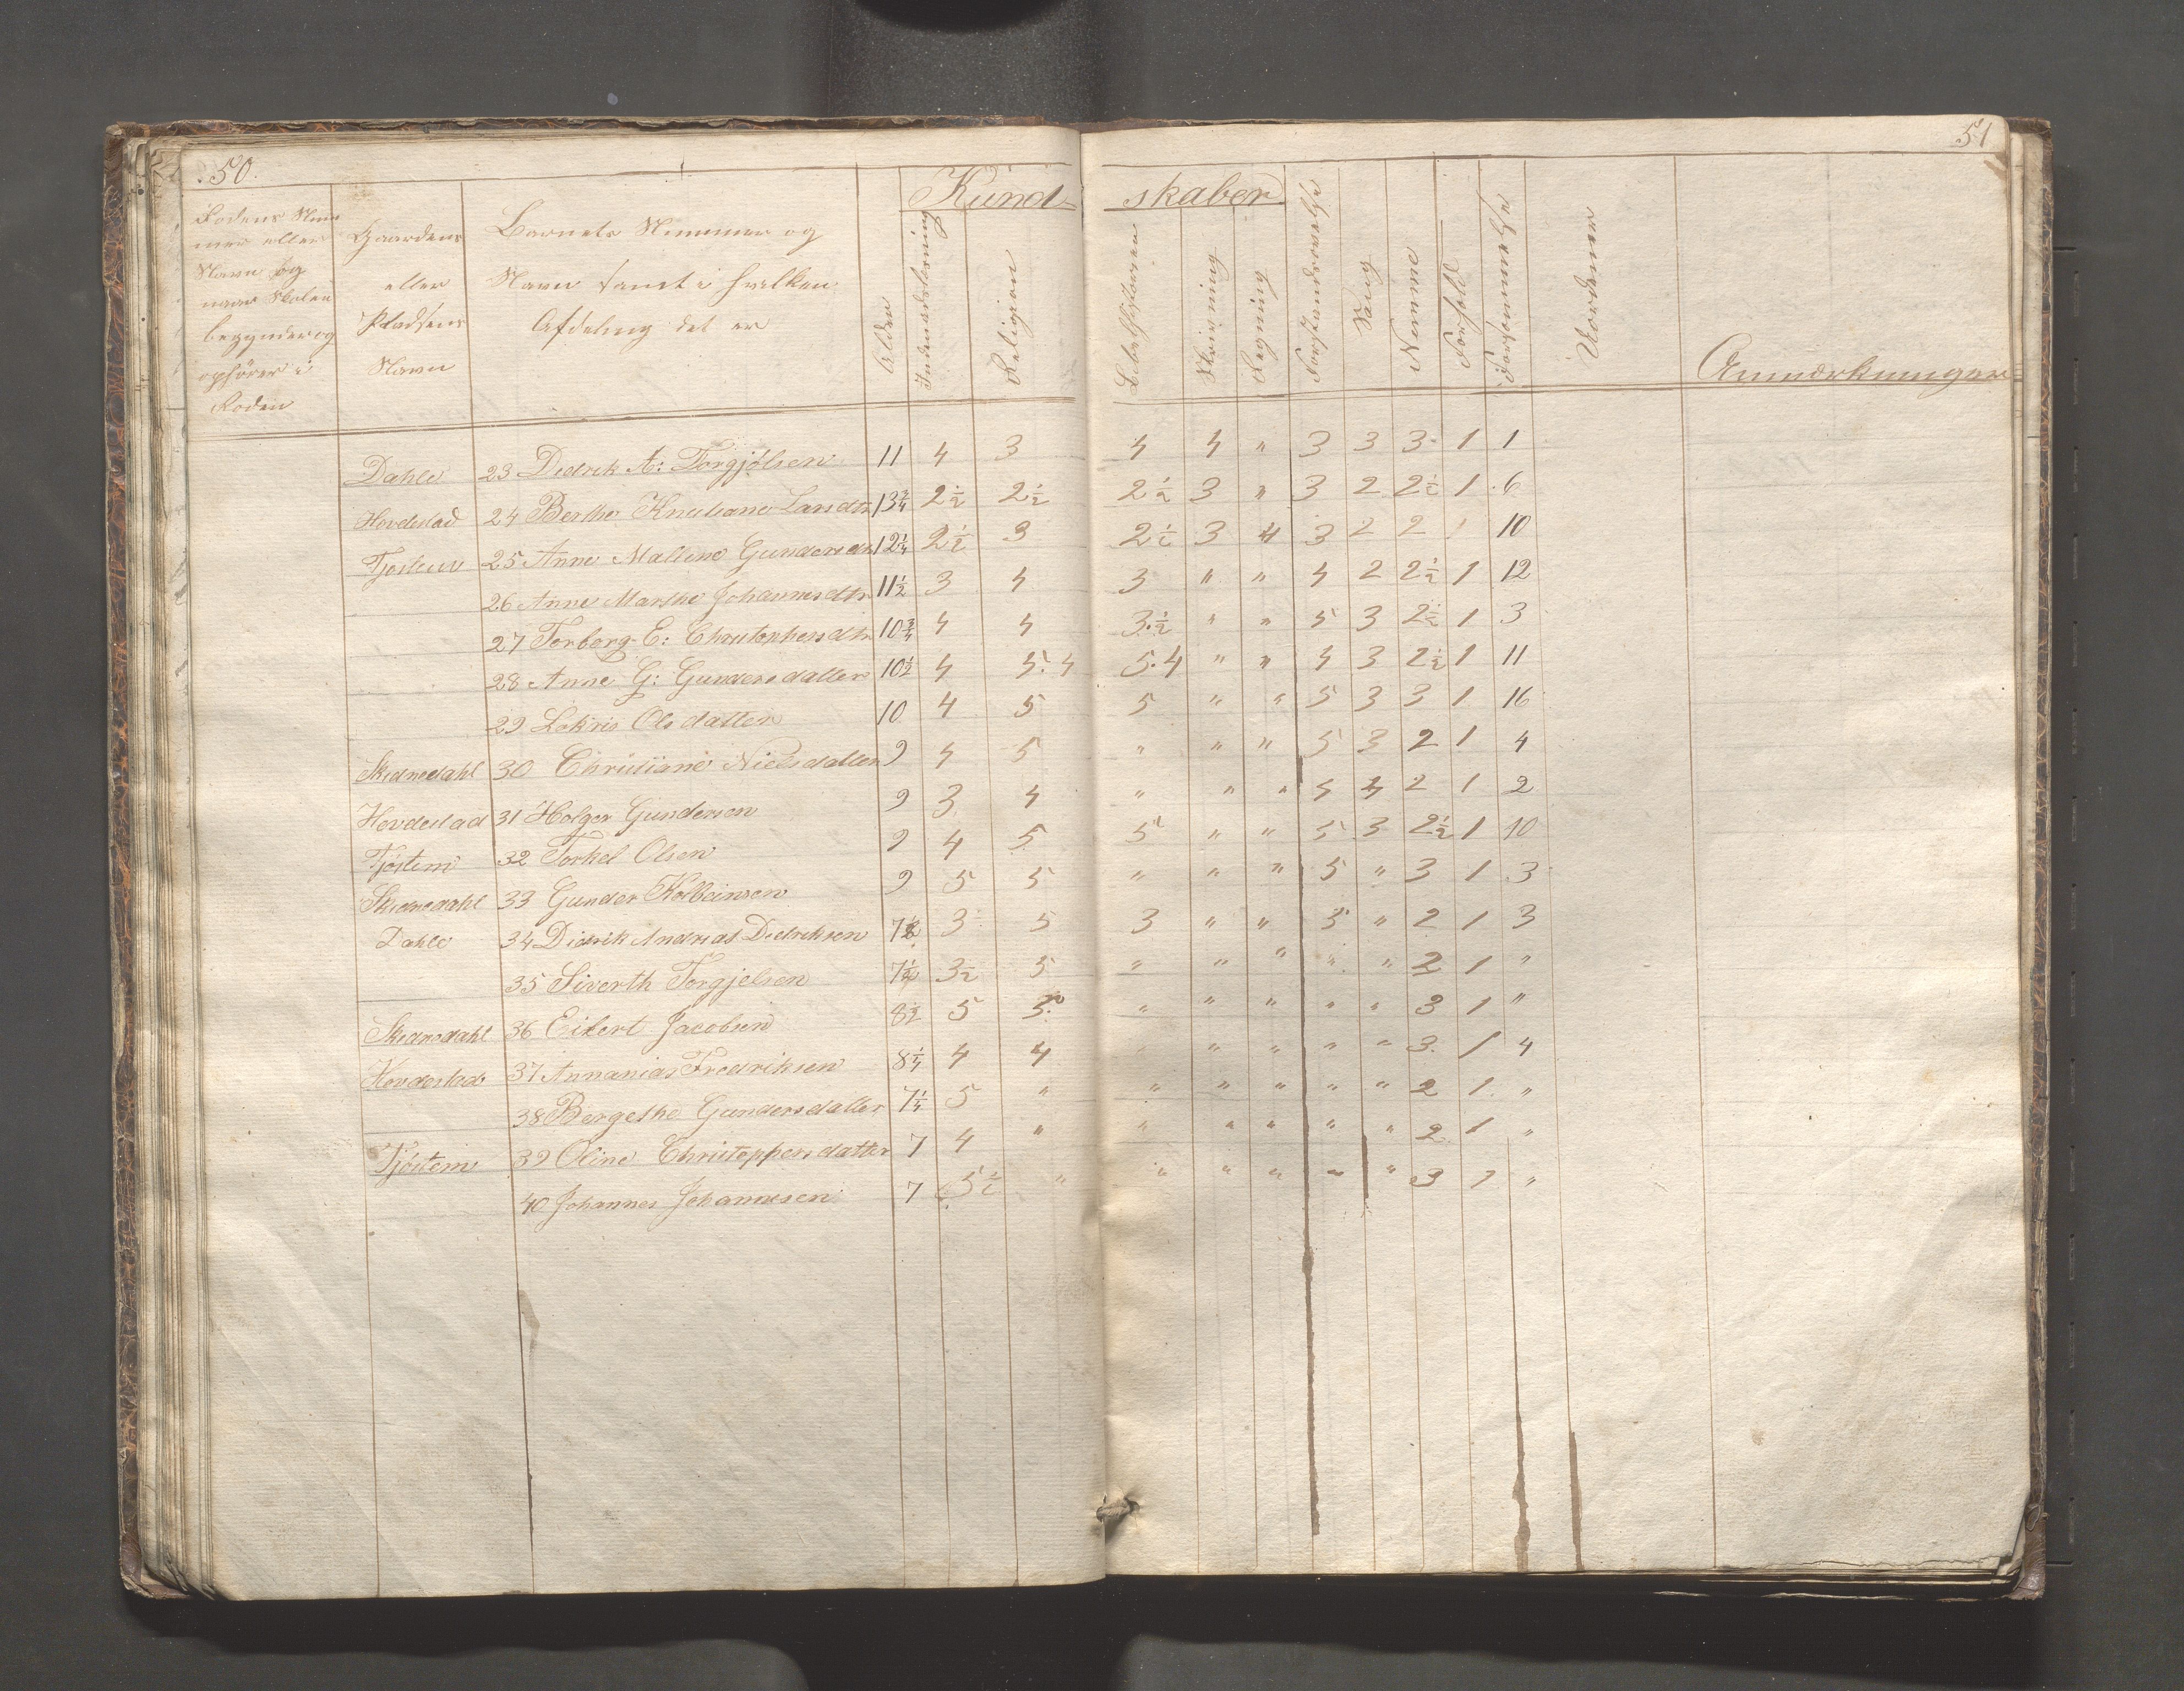 50.
51
Kund- skaber
Rodens Num
mer eller
Navn og
naar Skolen
begynder og
ophörer i
Roden
Gaardens
eller
Pladsens
Navn
Barnets Nummer og
Navn samt i hvilken
Afdeling det er
Alder
Indenadslæsning
Religion
Bibelhistorien
Skrivning
Regning
Forstandsøvelse
Sang
Nemme
Forhold
Forsømmelse
Vordener
Anmærkninger
Dahle 23 Didrik A: Torgjölsen 11 4 3 4 4 " 3 3 3 1 1
Hovdestad 24 Berthe Knutiane Larsdtr 13¾ 2½ 2½ 2½ 3 " 3 2 2½ 1 6
Tjöstem 25 Anne Mallene Gundersdtr 12¼ 2½ 3 2½ 3 4 3 2 2 1 10
26 Anne Marthe Johannesdtr 11½ 3 4 3 " " 4 2 2½ 1 12
27 Torborg E: Christophersdtr 10¾ 4 4 3½ " " 5 3 2½ 1 3
28 Anne G: Gundersdatter 10½ 4 5.4 5.4 " " 4 3 2½ 1 11
29 Lokris Olsdatter 10 4 5 5 " " 5 3 3 1 16
Skednedahl 30 Christiane Nielsdatter 9 4 5 " " " 5 3 2 1 4
Hovdestad 31 Holger Gundersen 9 3 4 " " " 4 4 2 1 2
Tjöstem 32 Torkel Olsen 9 4 5 5 " " 5 3 2½ 1 10
Skednedahl 33 Gunder Kolbeinsen 9 5 5 " " " 5 " 3 1 3
Dahle 34 Didrik Andreas Didriksen 7½ 3 5 3 " " 5 " 2 1 3
35 Siverth Torgjelsen 7½ 3½ 5 " " " " " 2 1 "
Skednedahl 36 Eilert Jacobsen 8½ 5 5 " " " " " 3 1 "
Hovdestad 37 Annanias Fredriksen 8¼ 4 4 " " " " " 3 1 4
38 Bergethe Gundersdatter 7¼ 5 " " " " " " 2 1 "
Tjöstem 39 Oline Christoppersdatter 7 4 " " " " " " 2 1 "
40 Johannes Johannesen 7 5½ " " " " " " 3 1 "